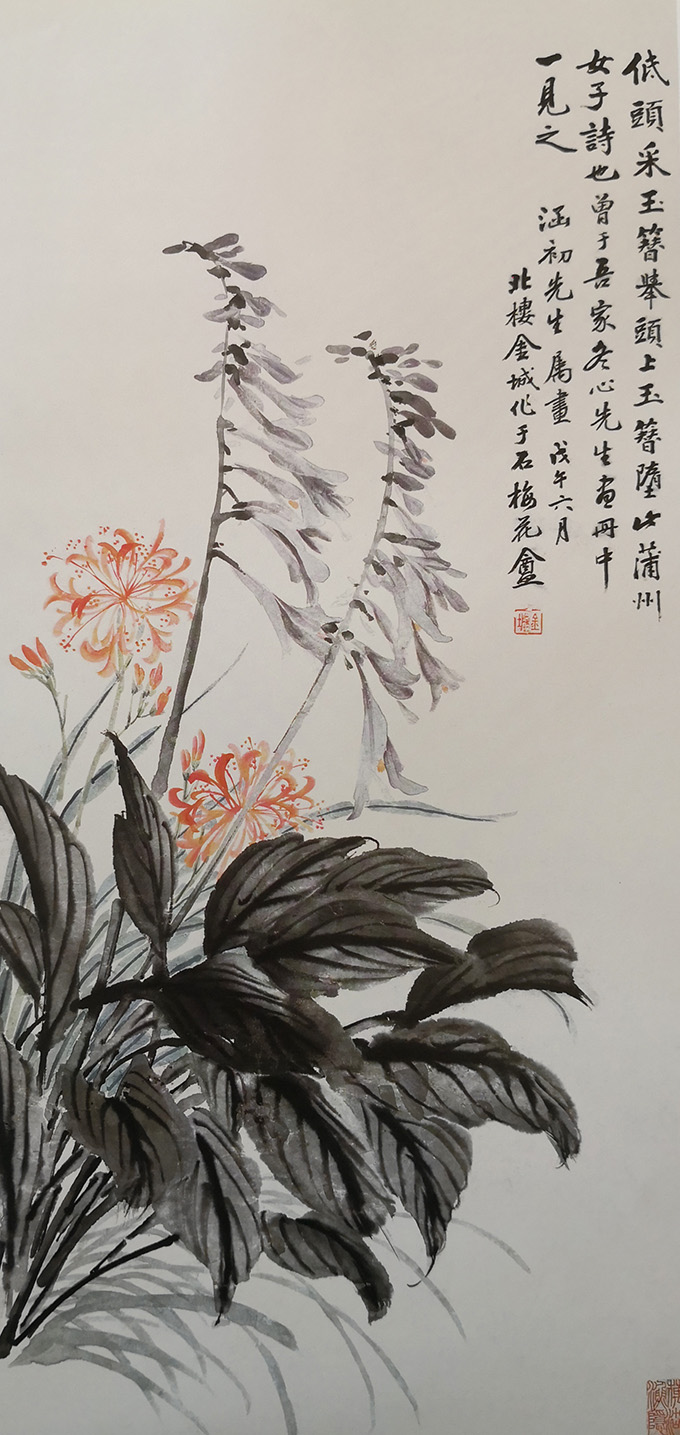 低頭采玉簪舉頭上玉簪墮此蒲州
女子詩也曾于吾家冬心先生畫冊中
一見之
涵初先生屬畫戊午六月
北樓金城作于石梅花盦
金城